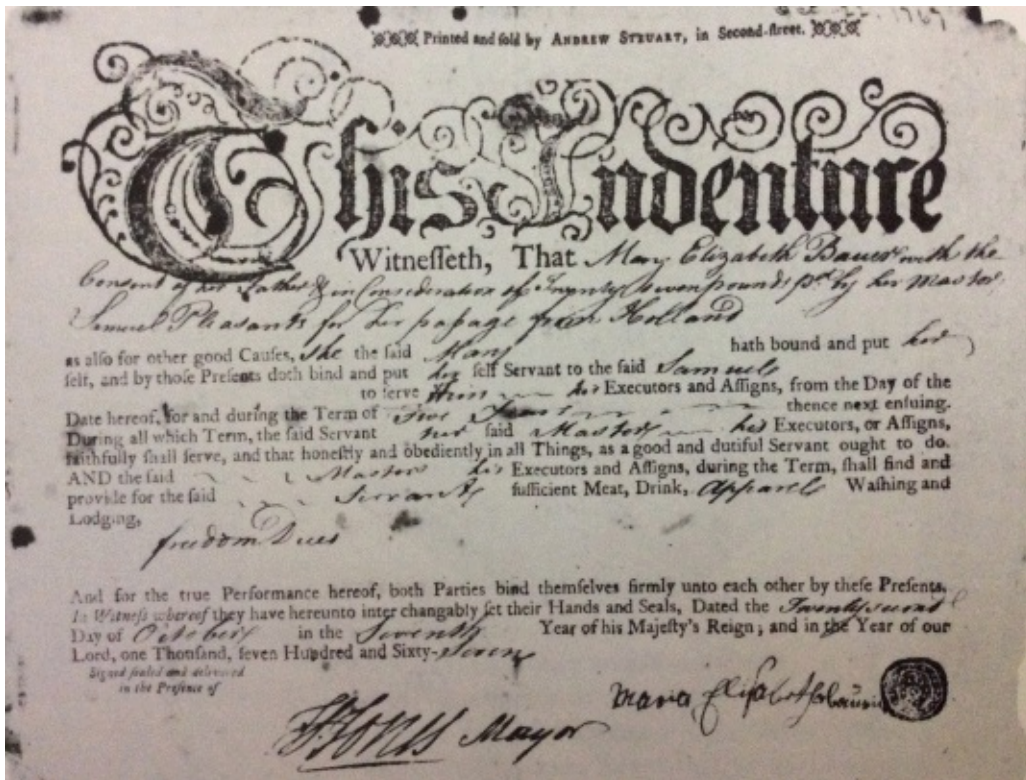 Oct. 22. 1767
Printed and sold by ANDREW STEUART, in Second-street.
This Indenture
Witnesseth, That Mary Elizabeth Bauer with the
Consent of her Father & in Consideration of Twenty seven pounds pd. by her Master
Samuel Pleasants for her passage from Holland
as also for other good Causes, She the said Mary hath bound and put her
self, and by those Presents doth bind and put her self Servant to the said Samuel
to serve him his Executors and Assigns, from the Day of the
Date hereof, for and during the Term of Five Years thence next ensuing.
During all which Term, the said Servant her said Master his Executors, or Assigns,
faithfully shall serve, and that honestly and obediently in all Things, as a good and dutiful Servant ought to do.
AND the said Master his Executors and Assigns, during the Term, shall find and
provide for the said Servant sufficient Meat, Drink, Apparel Washing and
Lodging,
freedom Dues
And for the true Performance hereof, both Parties bind themselves firmly unto each other by these Presents,
In Witness whereof they have hereunto inter changably set their Hands and Seals, Dated the Twenty second
Day of October in the Seventh Year of his Majesty's Reign; and in the Year of our
Lord, one Thousand, seven Hundred and Sixty-Seven
Signed sealed and delivered
in the Presence of
Maria Elisabetha
Mayor